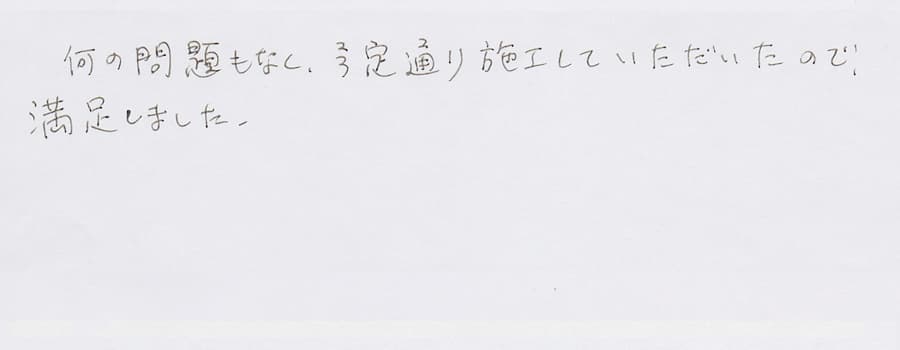 何の問題もなく、予定通り施工していただいたので、
満足しました。